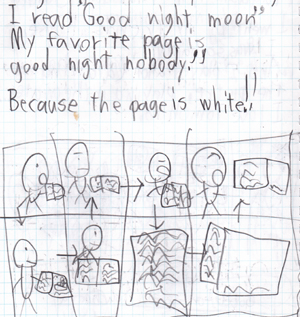 I read "Good night moon"
My favorite page is
good night nobody!!
Because the page is white!!